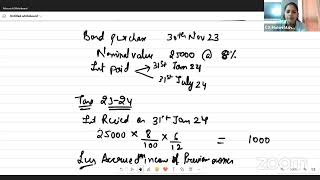 Bond purchase 30th Nov 23
Nominal value 25000 @ 8%
Int paid 31st Jan 24
31st July 24
23-24
Int Recived on 31st Jan 24
25000 × 8/100 × 6/12 = 1000
Less Accrued Income of Previous owner
zoom